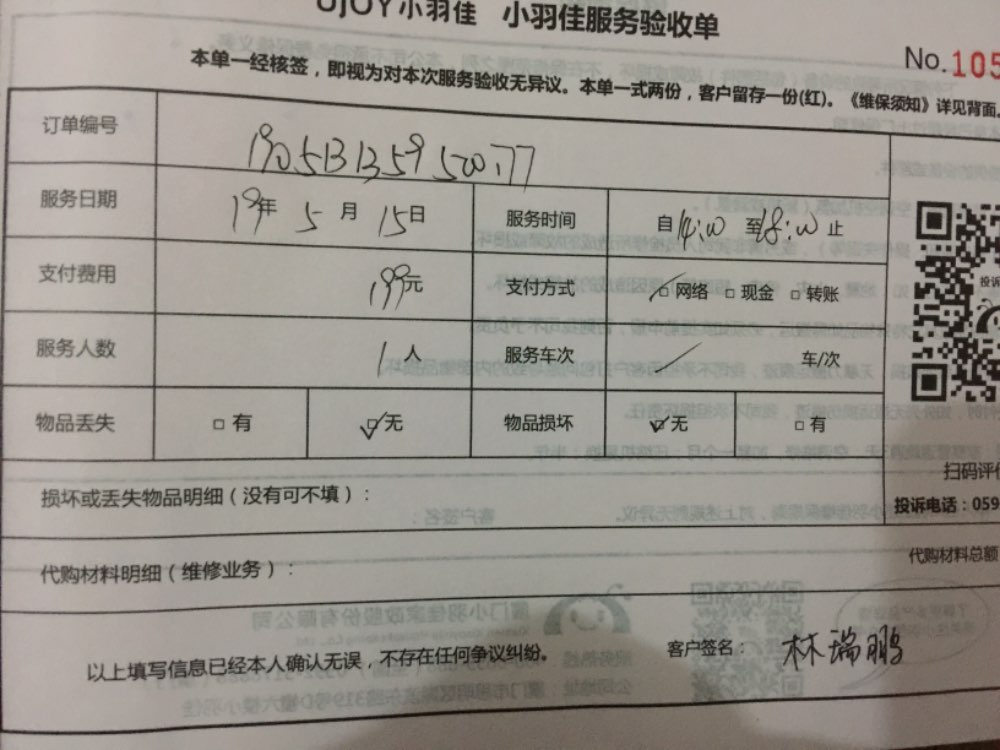 UJOY小羽佳 小羽佳服务验收单
No.105
本单一经核签，即视为对本次服务验收无异议。本单一式两份，客户留存一份(红)。《维保须知》详见背面。
订单编号 1905131359500177
服务日期 19年 5 月 15日 服务时间 自14:00 至18:00 止
支付费用 199元 支付方式 □网络 □现金 □转账
服务人数 1 人 服务车次 / 车/次
物品丢失 □有 ☑无 物品损坏 ☑无 □有
损坏或丢失物品明细（没有可不填）：
代购材料明细（维修业务）：
以上填写信息已经本人确认无误，不存在任何争议纠纷。 客户签名： 林瑞鹏
投诉
扫码评
投诉电话：059
代购材料总额